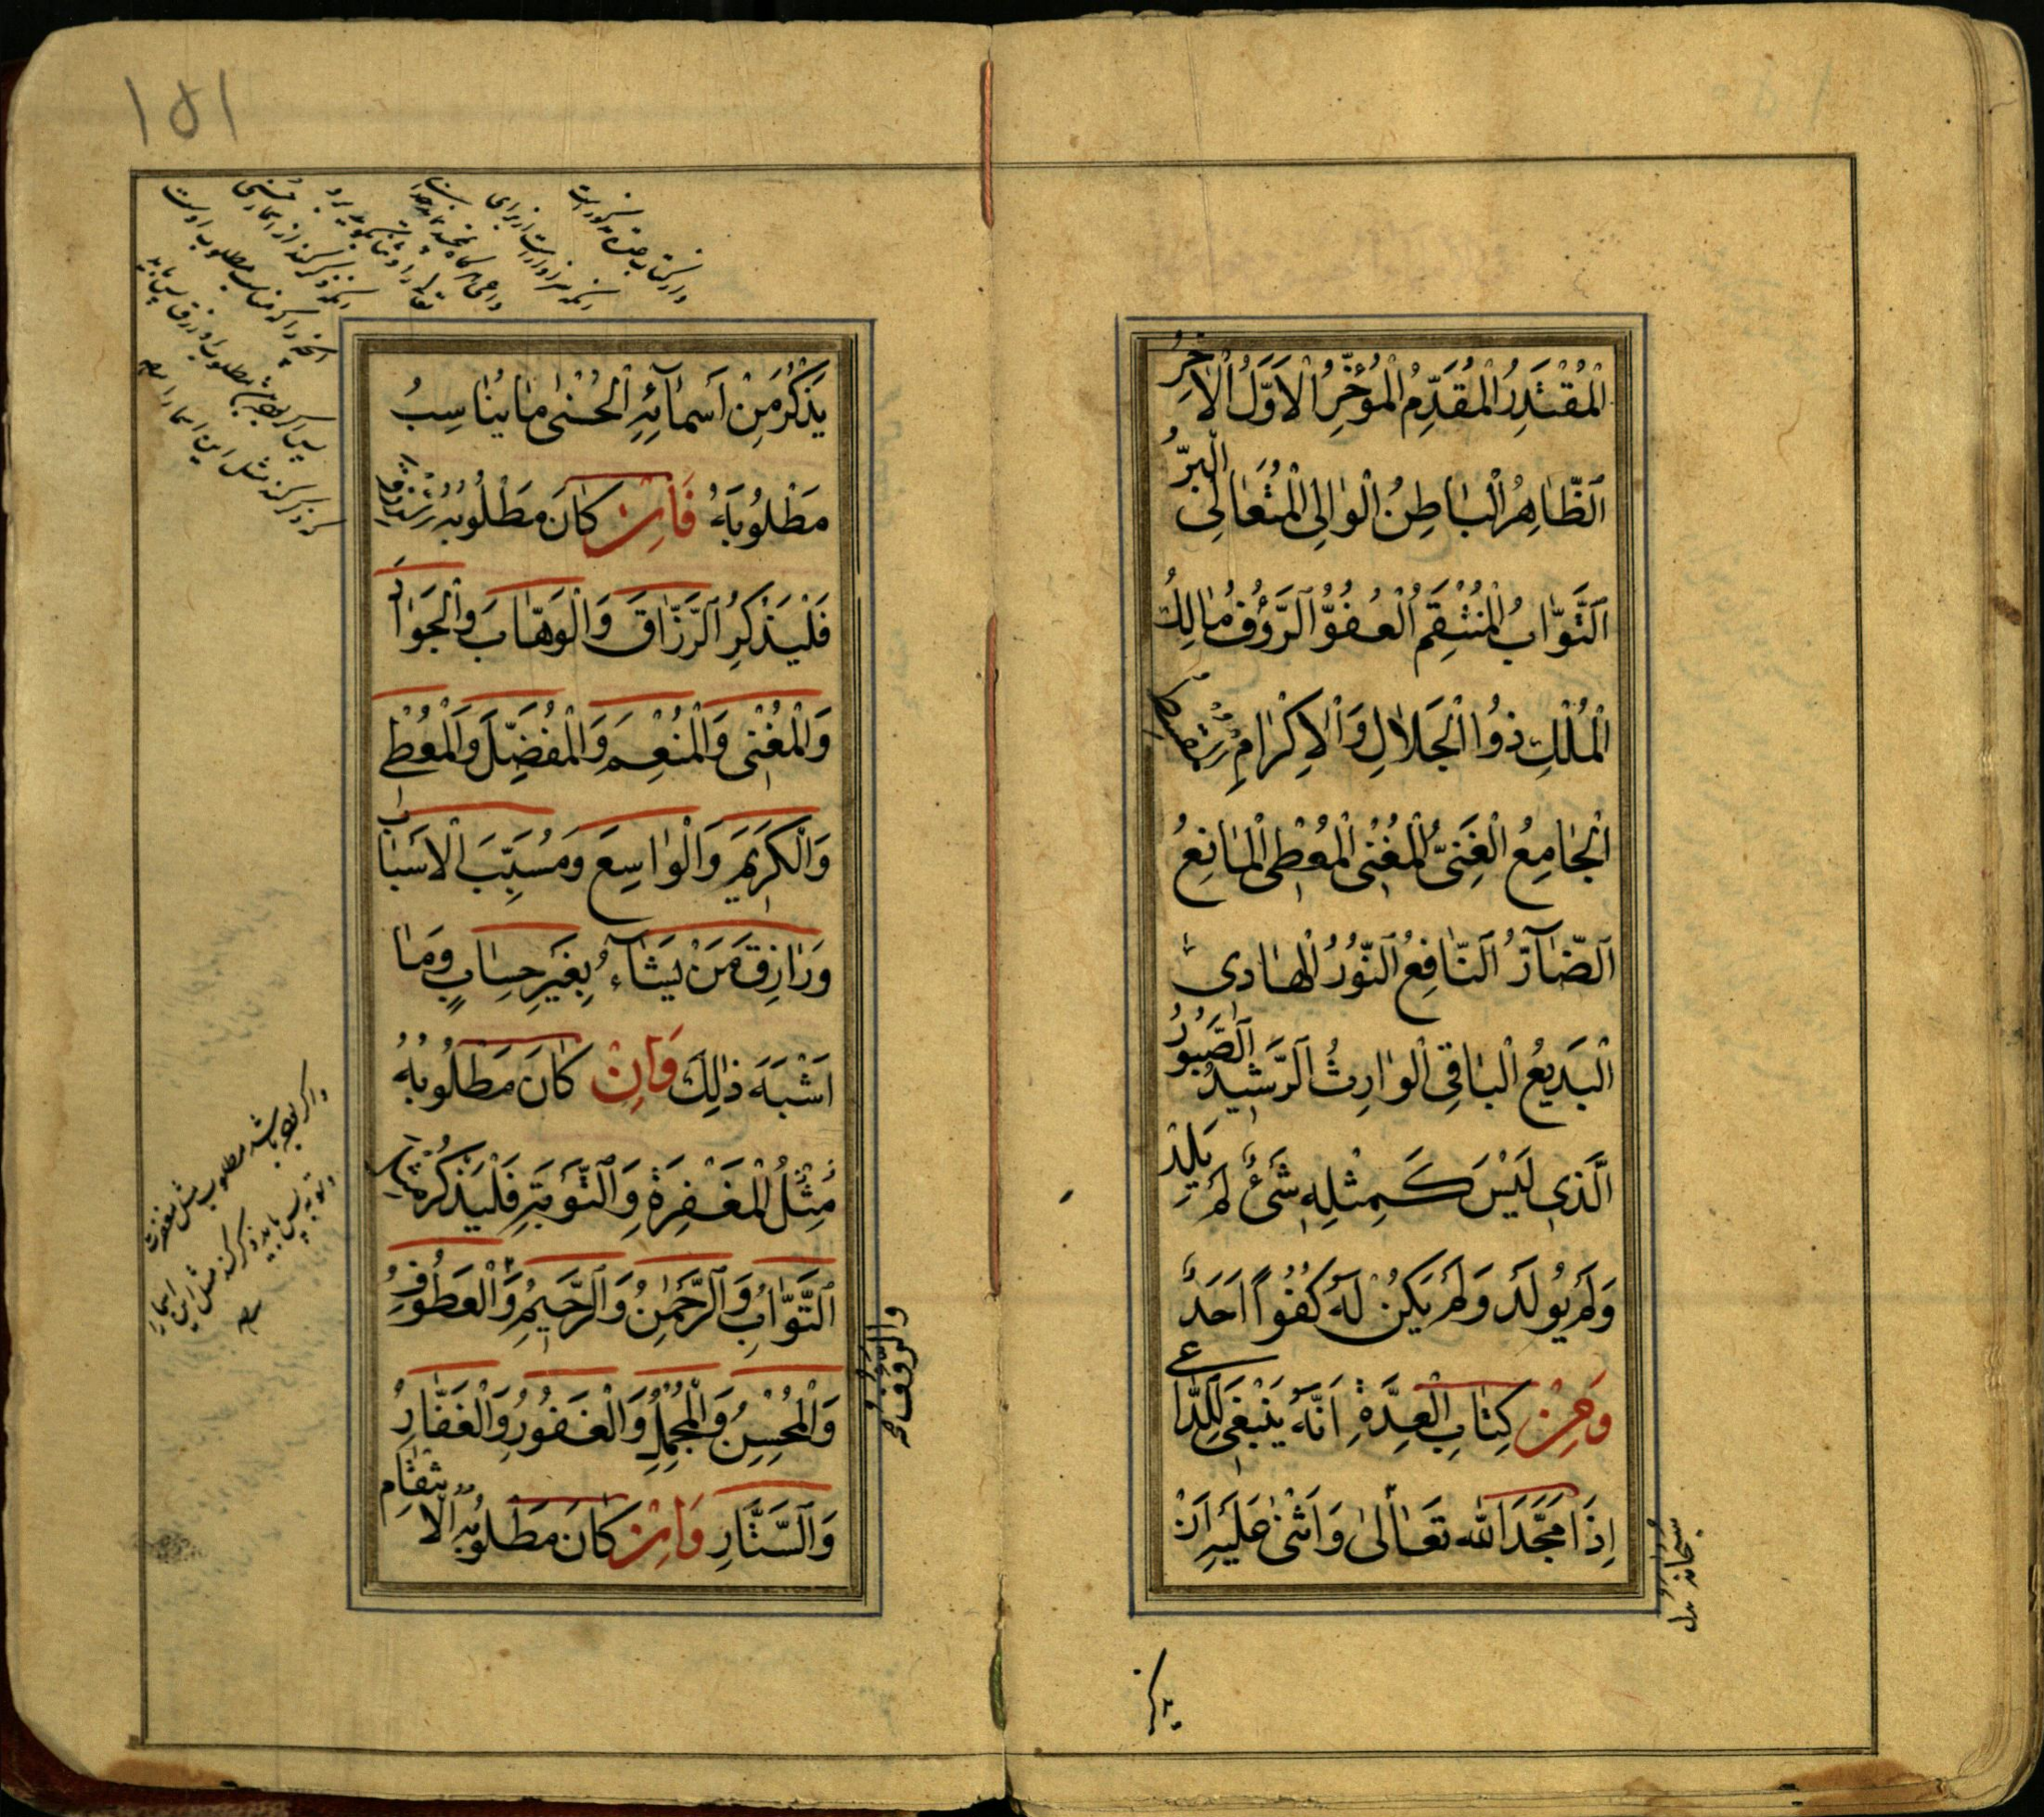 اَلْمُقْتَدِرُ الْمُقَدِّمُ الْمُؤَخِّرُ الْاَوَّلُ الْاٰخِرُ
اَلظّٰاهِرُ الْبٰاطِنُ الْوٰالِى الْمُتَعٰالِى الْبَرُّ
اَلتَّوّٰابُ الْمُنْتَقِمُ الْعَفُوُّ الرَّؤُفُ مٰالِكُ
الْمُلْكِ ذُوا الْجَلٰالِ وَالْاِكْرٰامِ
اَلْجٰامِعُ الْغَنِىُّ الْمُغْنِى الْمُعْطِى الْمٰانِعُ
اَلضّٰآرُّ اَلنّٰافِعُ اَلنُّورُ الْهٰادِى
الْبَدِيعُ الْبٰاقِى الْوٰارِثُ الرَّشِيدُ الصَّبُورُ
الَّذِى لَيْسَ كَمِثْلِهِ شَىْءٌ لَمْ يَلِدْ
وَلَمْ يُولَدْ وَلَمْ يَكُنْ لَهُ كُفُوًا اَحَدٌ
وَمِنْ كِتٰابِ الْعِدَّةِ اَنَّهُ يَنْبَغِى لِلدّٰاعِى
اِذٰا مَجَّدَ اللهَ تَعٰالىٰ وَاَثْنىٰ عَلَيْهِ اَنْ
سبحانه بدل
يذكر
١٥١
يَذْكُرَ مِنْ اَسْمٰآئِهِ الْحُسْنىٰ مٰا يُنٰاسِبُ
مَطْلُوبَهُ فَاِنْ كٰانَ مَطْلُوبُهُ الرِّزْقَ
فَلْيَذْكُرِ الرَّزّٰاقَ وَالْوَهّٰابَ وَالْجَوٰادَ
وَالْمُغْنِى وَالْمُنْعِمَ وَالْمُفَضِّلَ وَالْمُعْطِى
وَالْكَرِيمَ وَالْوٰاسِعَ وَمُسَبِّبَ الْاَسْبٰابِ
وَرٰازِقَ مَنْ يَشٰآءُ بِغَيْرِ حِسٰابٍ وَمٰا
اَشْبَهَ ذٰلِكَ وَاِنْ كٰانَ مَطْلُوبُهُ
مِثْلُ الْمَغْفِرَةِ وَالتَّوْبَةِ فَلْيَذْكُرْ مِثْلَ
التَّوّٰابُ وَالرَّحْمٰنُ وَالرَّحِيمُ وَالْعَطُوفُ
وَالرَّؤُف
وَالْمُحْسِنُ وَالْمُجْمِلُ وَالْغَفُورُ وَالْغَفّٰارِ
وَالسَّتّٰارِ وَاِنْ كٰانَ مَطْلُوبُهُ الْاِنْتِقٰامَ
واگر بوده باشد مطلوب مثل مغفرت
وتوبه پس بايد ذكر كند مثل اين اسماء